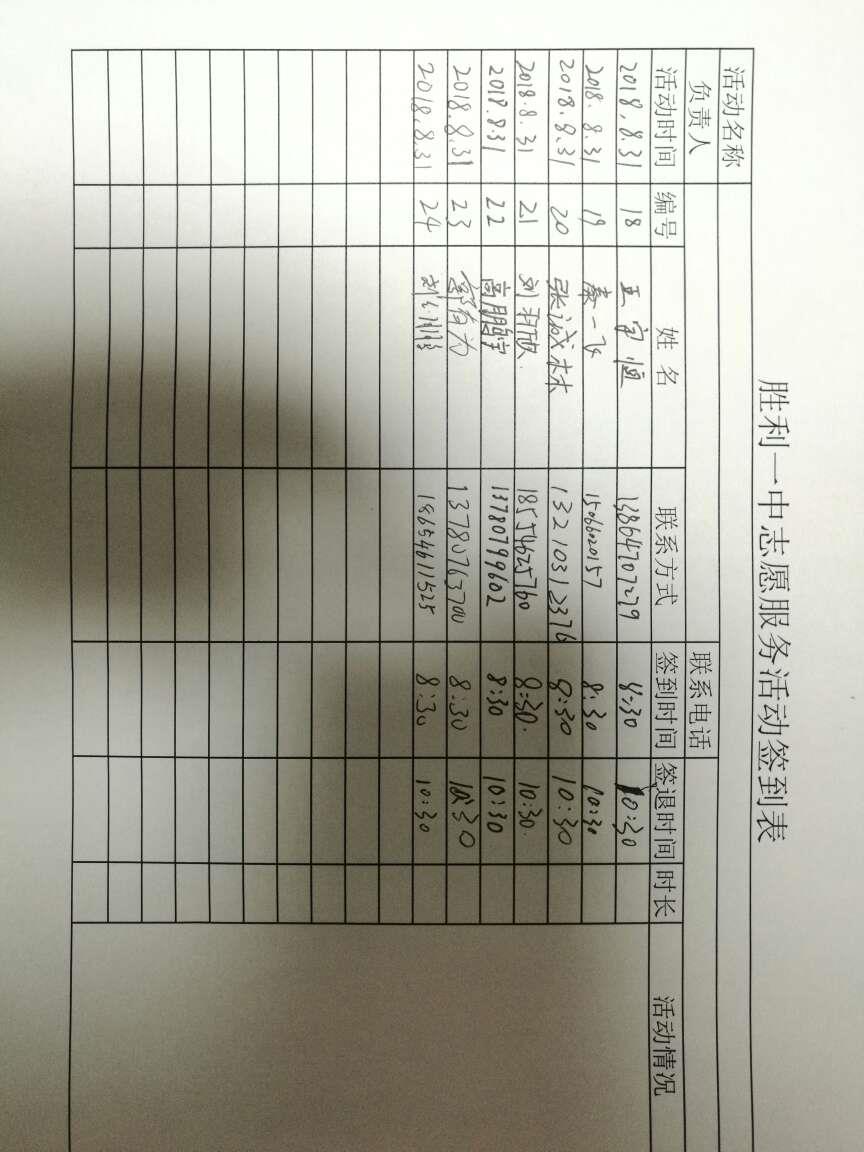 胜利一中志愿服务活动签到表
活动名称
负责人 联系电话
活动时间 编号 姓名 联系方式 签到时间 签退时间 时长 活动情况
2018.8.31 18 13864707279 8:30 10:30
2018.8.31 19 秦一飞 1506620157 8:30 10:30
2018.8.31 20 张诚林 13210312376 8:30 10:30
2018.8.31 21 刘羽欣 18554625760 8:30 10:30
2018.8.31 22 高鹏宇 13780799602 8:30 10:30
2018.8.31 23 郭有为 13780763700 8:30 10:30
2018.8.31 24 18654611525 8:30 10:30